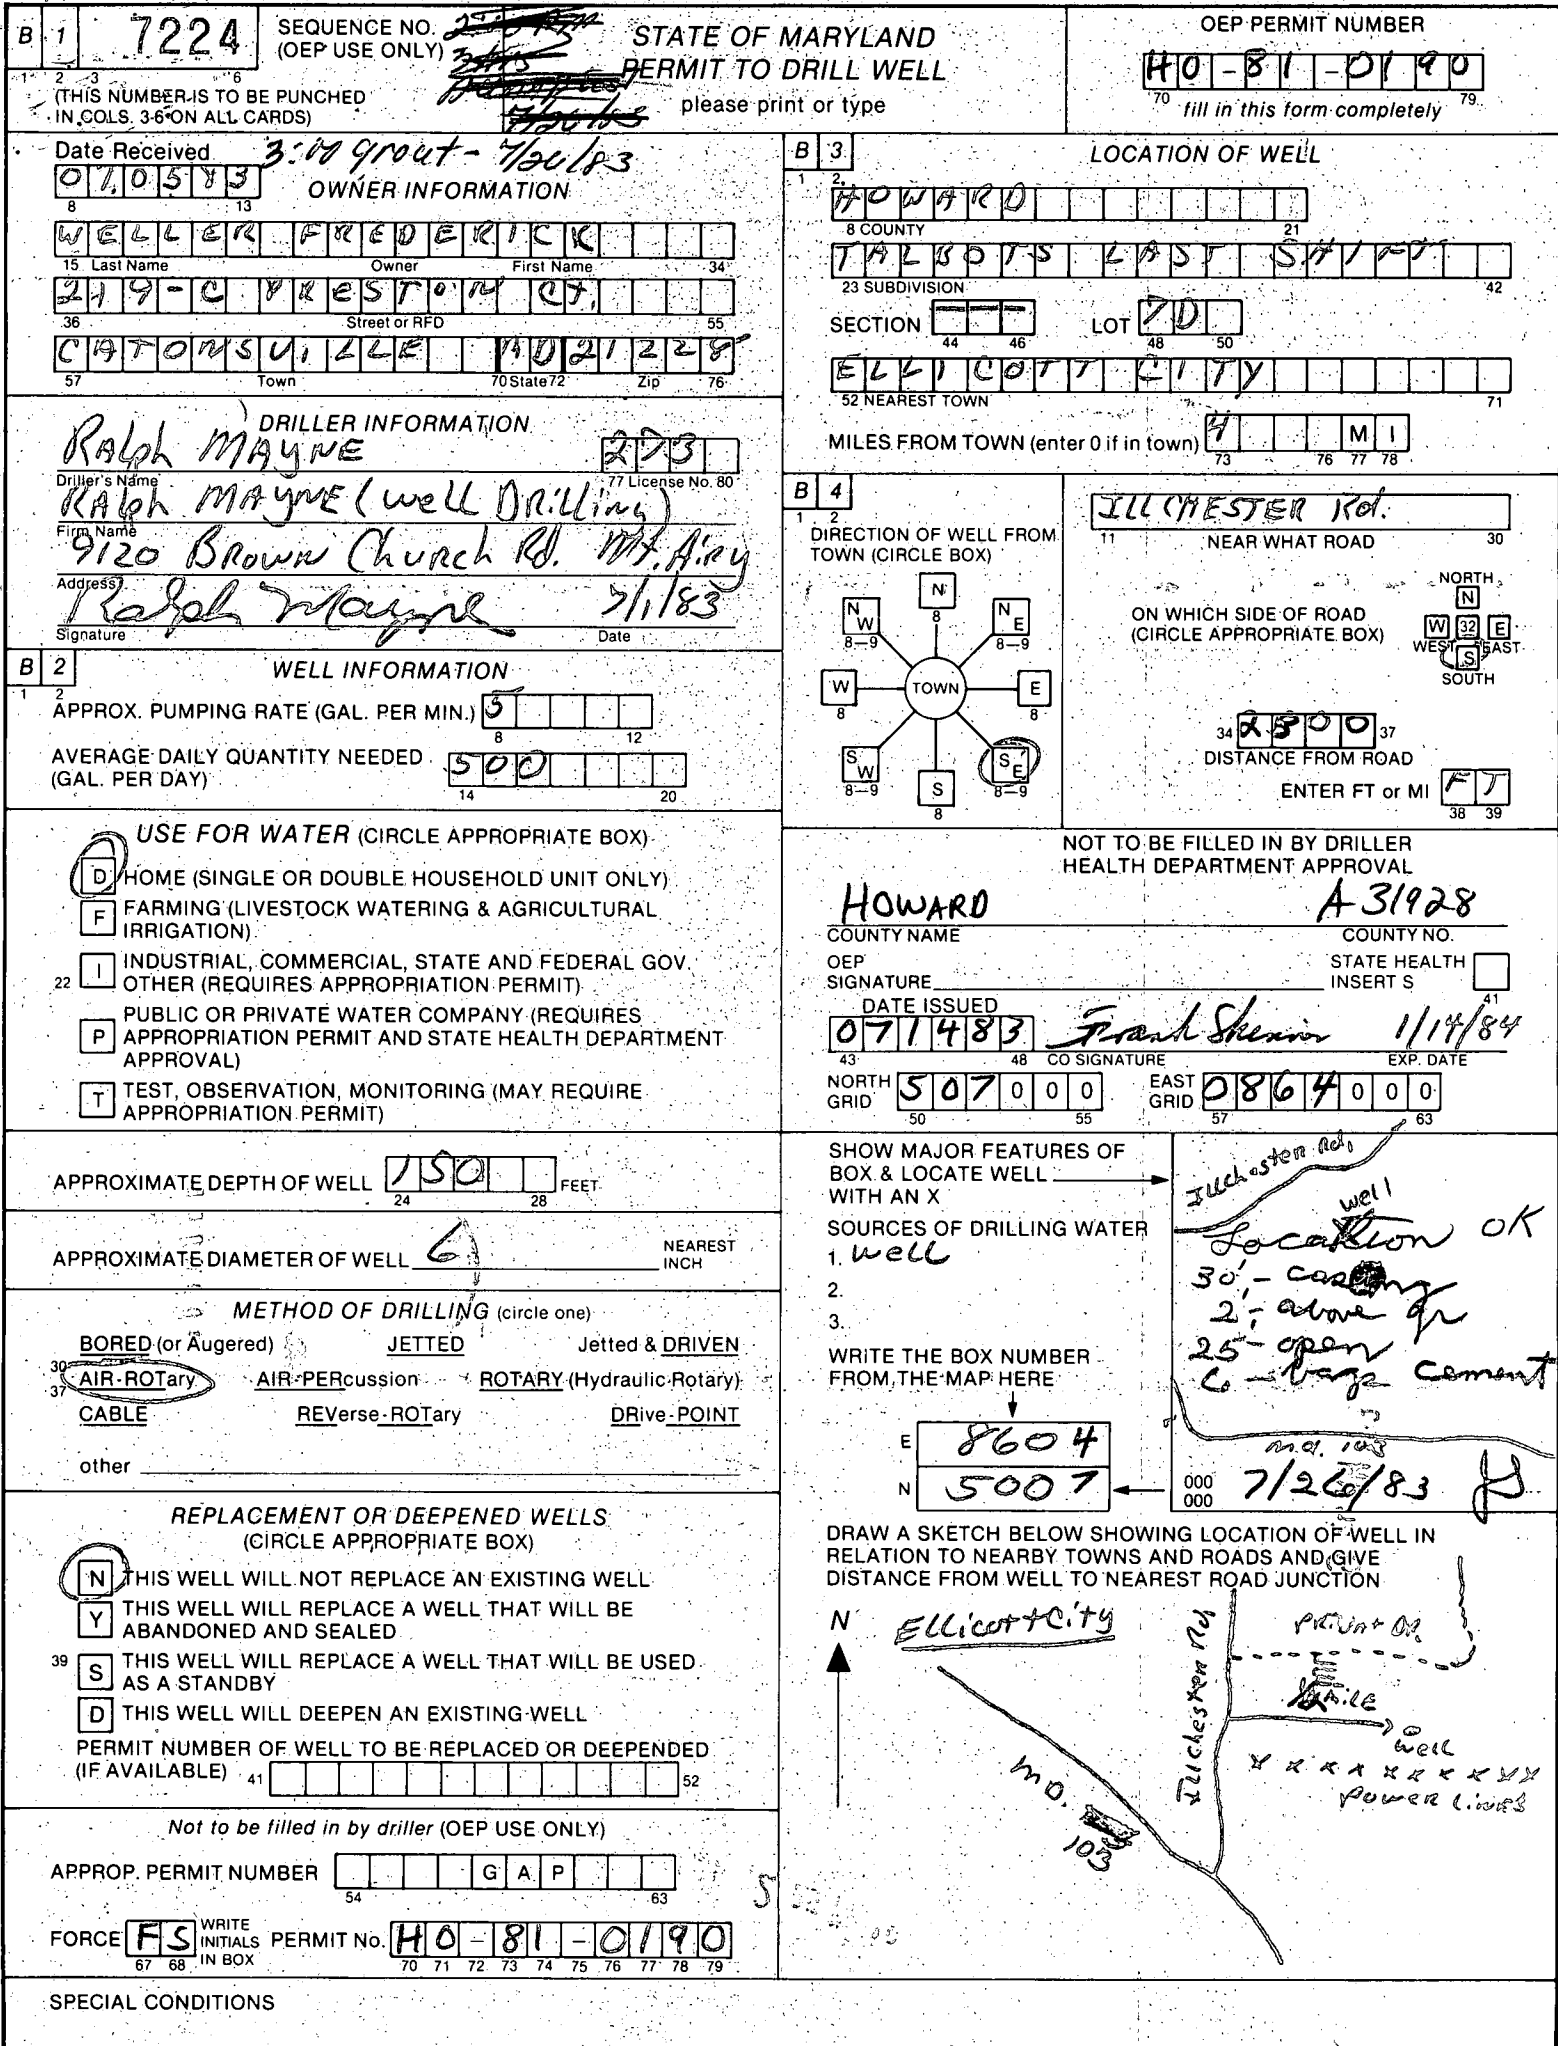 B 1 7224
SEQUENCE NO.
(OEP USE ONLY)
1 2 3 6
(THIS NUMBER IS TO BE PUNCHED
IN COLS. 3-6 ON ALL CARDS)
STATE OF MARYLAND
PERMIT TO DRILL WELL
please print or type
OEP PERMIT NUMBER
HO-81-0190
70 79
fill in this form completely
Date Received 3:00 grout - 7/26/83
070583
8 13
OWNER INFORMATION
WELLER FREDERICK
15 Last Name Owner First Name 34
219-C PRESTON CT.
36 Street or RFD 55
CATONSVILLE MD 21228
57 Town 70 State 72 Zip 76
DRILLER INFORMATION
Ralph MAYNE 273
Driller's Name 77 License No. 80
RAlph MAYNE (well DRilling)
Firm Name
9120 BROWN Church Rd. Mt. Airy
Address
Ralph Mayne 7/1/83
Signature Date
B 2 WELL INFORMATION
1 2
APPROX. PUMPING RATE (GAL. PER MIN.) 5
8 12
AVERAGE DAILY QUANTITY NEEDED
(GAL. PER DAY) 500
14 20
USE FOR WATER (CIRCLE APPROPRIATE BOX)
D HOME (SINGLE OR DOUBLE HOUSEHOLD UNIT ONLY)
F FARMING (LIVESTOCK WATERING & AGRICULTURAL
IRRIGATION)
22 I INDUSTRIAL, COMMERCIAL, STATE AND FEDERAL GOV.
OTHER (REQUIRES APPROPRIATION PERMIT)
P PUBLIC OR PRIVATE WATER COMPANY (REQUIRES
APPROPRIATION PERMIT AND STATE HEALTH DEPARTMENT
APPROVAL)
T TEST, OBSERVATION, MONITORING (MAY REQUIRE
APPROPRIATION PERMIT)
APPROXIMATE DEPTH OF WELL 150 FEET
24 28
APPROXIMATE DIAMETER OF WELL 6 NEAREST
INCH
METHOD OF DRILLING (circle one)
BORED (or Augered) JETTED Jetted & DRIVEN
30 AIR-ROTary AIR-PERcussion ROTARY (Hydraulic Rotary)
37
CABLE REVerse-ROTary DRive-POINT
other
REPLACEMENT OR DEEPENED WELLS
(CIRCLE APPROPRIATE BOX)
N THIS WELL WILL NOT REPLACE AN EXISTING WELL
Y THIS WELL WILL REPLACE A WELL THAT WILL BE
ABANDONED AND SEALED
39 S THIS WELL WILL REPLACE A WELL THAT WILL BE USED
AS A STANDBY
D THIS WELL WILL DEEPEN AN EXISTING WELL
PERMIT NUMBER OF WELL TO BE REPLACED OR DEEPENDED
(IF AVAILABLE) 41 52
Not to be filled in by driller (OEP USE ONLY)
APPROP. PERMIT NUMBER G A P
54 63
FORCE FS WRITE
INITIALS
IN BOX PERMIT No. HO-81-0190
67 68 70 71 72 73 74 75 76 77 78 79
SPECIAL CONDITIONS
B 3 LOCATION OF WELL
1 2
HOWARD
8 COUNTY 21
TALBOTS LAST SHIFT
23 SUBDIVISION 42
SECTION --- LOT 7D
44 46 48 50
ELLICOTT CITY
52 NEAREST TOWN 71
MILES FROM TOWN (enter 0 if in town) 4 M I
73 76 77 78
B 4
1 2
DIRECTION OF WELL FROM
TOWN (CIRCLE BOX)
N
8
NW NE
8-9 8-9
W TOWN E
8 8
SW SE
8-9 8-9
S
8
ILLCHESTER Rd.
11 NEAR WHAT ROAD 30
ON WHICH SIDE OF ROAD
(CIRCLE APPROPRIATE BOX)
NORTH
N
W 32 E
WEST EAST
S
SOUTH
34 2500 37
DISTANCE FROM ROAD
ENTER FT or MI FT
38 39
NOT TO BE FILLED IN BY DRILLER
HEALTH DEPARTMENT APPROVAL
HOWARD A 31928
COUNTY NAME COUNTY NO.
OEP
SIGNATURE
STATE HEALTH
INSERT S
41
DATE ISSUED
071483 Frank Skinner 1/14/84
43 48 CO SIGNATURE EXP. DATE
NORTH
GRID 507000
50 55
EAST
GRID 0864000
57 63
SHOW MAJOR FEATURES OF
BOX & LOCATE WELL
WITH AN X
SOURCES OF DRILLING WATER
1. well
2.
3.
WRITE THE BOX NUMBER
FROM THE MAP HERE
E 8604
N 5007
Illchester Rd.
well
Location OK
30' - casing
2' - above gr
25 - open
6 - bags cement
md. 103
000
000
7/26/83 JS
DRAW A SKETCH BELOW SHOWING LOCATION OF WELL IN
RELATION TO NEARBY TOWNS AND ROADS AND GIVE
DISTANCE FROM WELL TO NEAREST ROAD JUNCTION
N
Ellicott City
Illchester Rd
Privat DR.
MILE
well
Power Lines
MD.
103